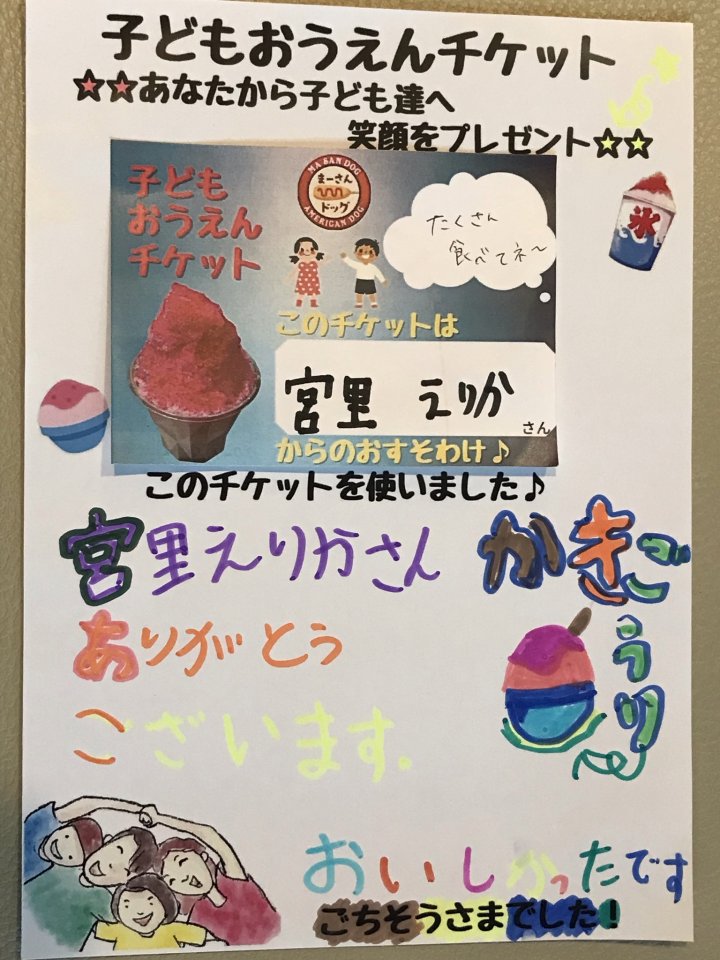 子どもおうえんチケット
☆☆あなたから子ども達へ
笑顔をプレゼント☆☆
子ども
おうえん
チケット
MA SAN DOG
まーさん
ドッグ
AMERICAN DOG
たくさん
食べてネ〜
氷
このチケットは
宮里 えりか
さん
からのおすそわけ♪
このチケットを使いました♪
宮里えりかさん
ありがとう
ございます。
かきご
うり
おいしかったです
ごちそうさまでした!